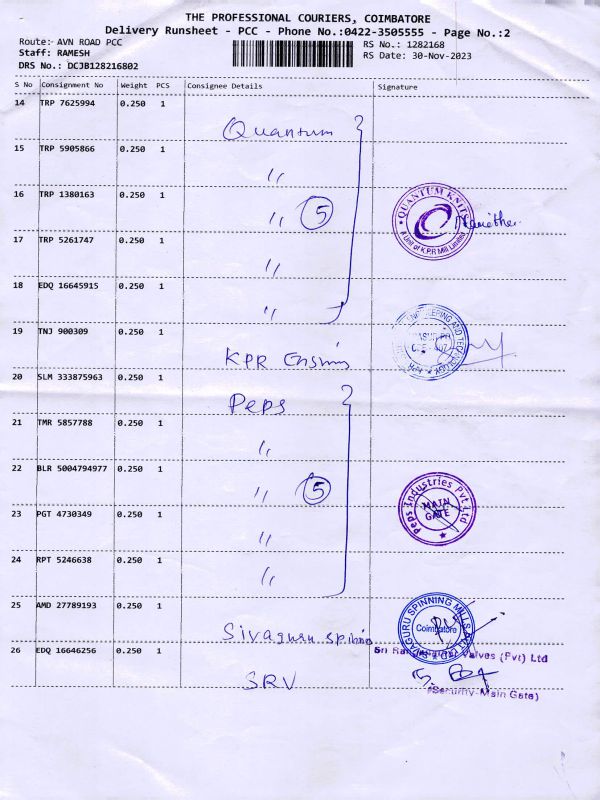 THE PROFESSIONAL COURIERS, COIMBATORE
Delivery Runsheet - PCC - Phone No.:0422-3505555 - Page No.:2
Route:- AVN ROAD PCC
RS No.: 1282168
Staff: RAMESH
RS Date: 30-Nov-2023
DRS No.: DCJB128216802
S No Consignment No Weight PCS Consignee Details Signature
14 TRP 7625994 0.250 1
Quantum
15 TRP 5905866 0.250 1
"
16 TRP 1380163 0.250 1
" 5
QUANTUM KNITS
A Unit of K.P.R Mill Limited
17 TRP 5261747 0.250 1
"
18 EDQ 16645915 0.250 1
"
19 TNJ 900309 0.250 1
KPR
20 SLM 333875963 0.250 1
Peps
21 TMR 5857788 0.250 1
"
22 BLR 5004794977 0.250 1
" 5
Peps Industries Pvt Ltd
MAIN
GATE
23 PGT 4730349 0.250 1
"
24 RPT 5246638 0.250 1
"
25 AMD 27789193 0.250 1
Sivaguru
SPINNING MILLS
Coimbatore
26 EDQ 16646256 0.250 1
Valves (Pvt) Ltd
SRV
(Security-Main Gate)